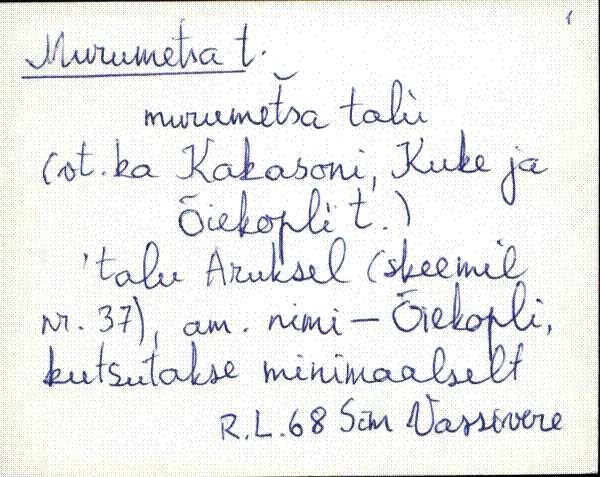 1
Murumetsa t.
murumet̆sa talù
(vt. ka Kakasoni, Kuke ja
Õiekopli t.)
'talu Aruksel (skeemil
nr. 37), am. nimi – Õiekopli,
kutsutakse minimaalselt
R.L.68 Sim Vassivere